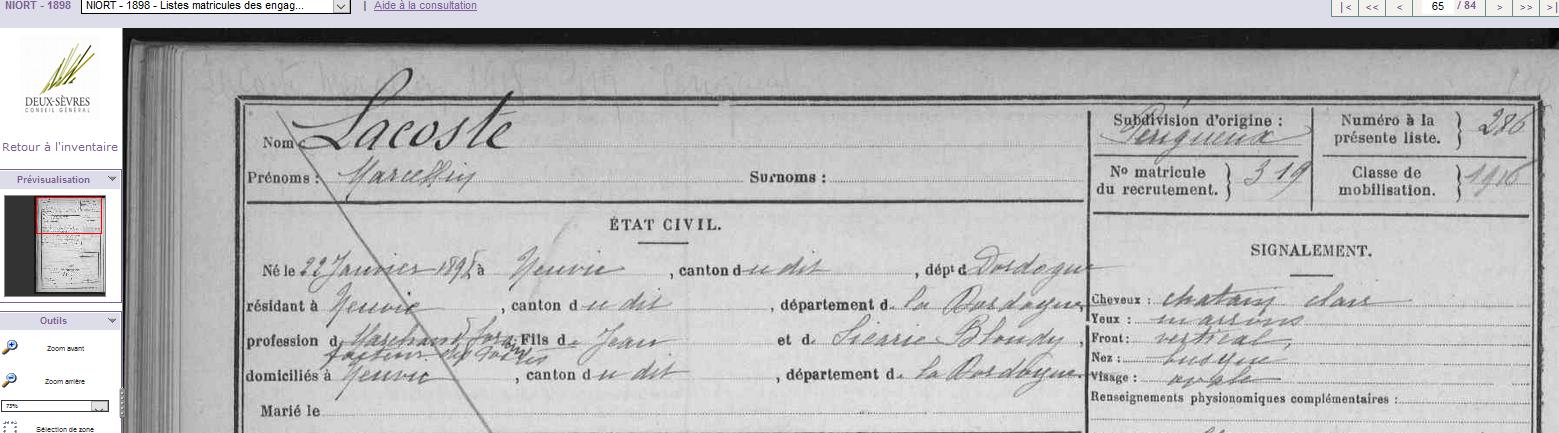 NIORT - 1898
NIORT - 1898 - Listes matricules des engag...
| Aide à la consultation
|< << < 65 / 84 > >> >|
DEUX-SÈVRES
CONSEIL GÉNÉRAL
Retour à l'inventaire
Prévisualisation
Outils
Zoom avant
Zoom arrière
75%
Sélection de zone
Nom Lacoste
Prénoms : Marcellin Surnoms :
Subdivision d'origine :
Périgueux
Numéro à la
présente liste. 286
No matricule
du recrutement. 319
Classe de
mobilisation. 1916
ÉTAT CIVIL.
Né le 22 Janvier 189 à Neuvic , canton du dit , dépt d Dordogne
résidant à Neuvic , canton du dit , département d. la Dordogne,
profession d. Marchand Fils d. Jean et d. Sicarie Bloudy ,
facteur des Postes
domiciliés à Neuvic , canton du dit , département d. la Dordogne.
Marié le
SIGNALEMENT.
Cheveux : chatain clair
Yeux : marrons
Front : vertical,
Nez : busqué
Visage : ovale
Renseignements physionomiques complémentaires :